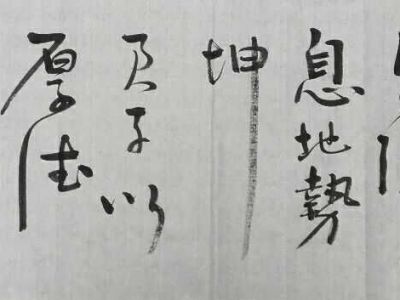 息地勢
坤
君子以
厚德